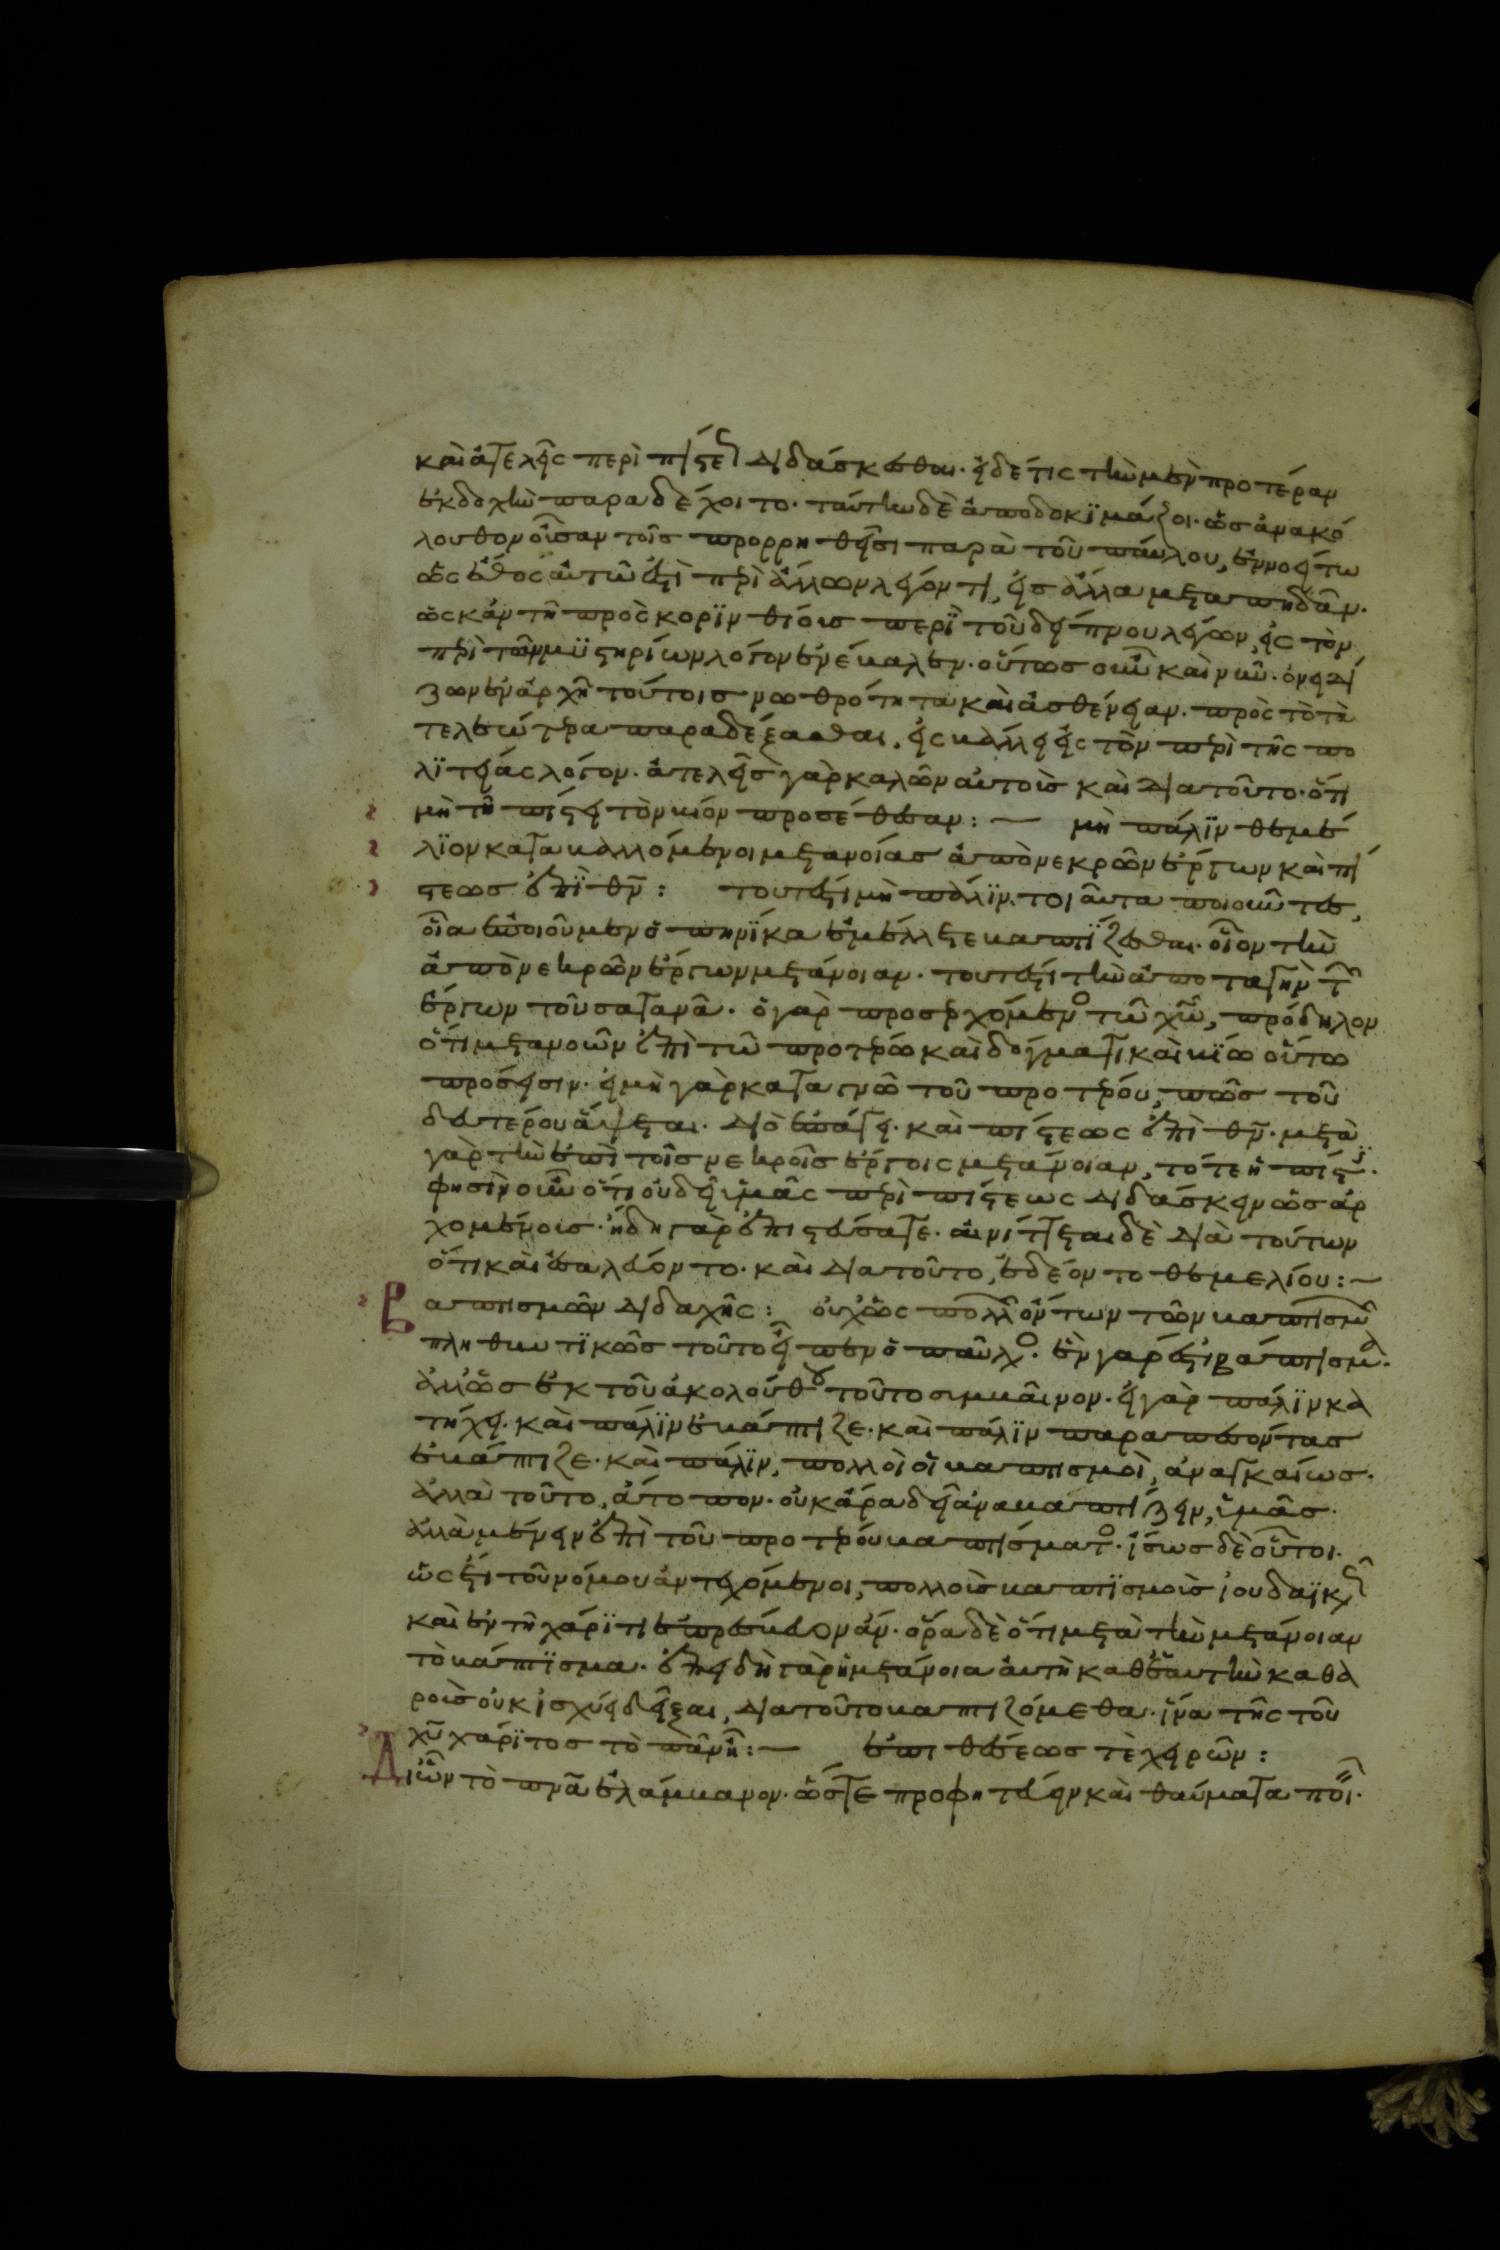 καὶ ἀτελεῖς περὶ πίστεως διδάσκεσθαι. εἰ δέ τις τὴν μὲν προτέραν
ἐκδοχὴν παραδέχοιτο. ταύτην δὲ ἀποδοκϊμάζοι. ὡς ἀνακό
λουθον οὖσαν τοῖς προρρηθεῖσι παρὰ τοῦ παύλου, ἐννοείτω
ὡς ἔθος αὐτῶ ἐστὶ περὶ ἄλλων λέγοντι, εἰς ἄλλα μεταπηδᾶν.
ὡς κἀν τῆ πρὸς κορϊνθίοις περὶ τοῦ δείπνου λέγων, εἰς τὸν
περὶ τῶν μυστηρίων λόγον ἐνέβαλεν. οὕτως οὖν καὶ νῦν. ὀνειδί
ζων ἐν ἀρχῆ τούτοις νωθρότητα καὶ ἀσθένειαν. πρὸς τὸ τὰ
τελεώτερα παραδέξασθαι, εἰσβάλλει εἰς τὸν περὶ τῆς πο
λϊτείας λόγον. ἀτελεῖς γὰρ καλῶν αὐτοὺς καὶ διατοῦτο. ὅτι
μὴ τῆ πίστει τὸν βίον προσέθεσαν: — μὴ πάλϊν θεμέ
λϊον καταβαλλόμενοι μετανοίας ἀπὸ νεκρῶν ἔργων καὶ πί
στεως ἐπὶ θν̄: τουτέστι μὴ πάλϊν τοιαῦτα ποιοῦντες,
οἷα ἐποιοῦμεν ὁπηνίκα ἐμέλλετε βαπτίζεσθαι. οἷον τὴν
ἀπὸ νεκρῶν ἔργων μετάνοιαν. τουτέστι τὴν ἀποταγὴν τῶν
ἔργων τοῦ σατανᾶ. ὁ γὰρ προσερχόμενος τῶ χω̄, πρόδηλον
ὅτι μετανοῶν ἐπὶ τῶ προτέρω καὶ δόγματι καὶ βίω οὕτω
πρόσεισιν. εἰ μὴ γὰρ καταγνῶ τοῦ προτέρου, πῶς τοῦ
δευτέρου ἅψεται. διὸ ἐπάγει. καὶ πίστεως ἐπὶ θν̄. μετὰ
γὰρ τὴν ἐπὶ τοῖς νεκροῖς ἔργοις μετάνοιαν, τότε ἡ πίστις.
φησὶν οὖν ὅτι οὐ δεῖ ὑμᾶς περὶ πίστεως διδάσκειν ὡς ἀρ
χομένοις. ἤδη γὰρ ἐπιστεύσατε. αἰνίττεται δὲ διὰ τούτων
ὅτι καὶ ἐσαλεύοντο. καὶ διατοῦτο, ἐδέοντο θεμελίου: —
Βαπτισμῶν διδαχῆς: οὐχ ὡς πολλῶν ὄντων τῶν βαπτισμῶν
πληθυντϊκῶς τοῦτο εἶπεν ὁ παῦλος. ἓν γάρ ἐστι βάπτισμα.
ἀλλ' ὡς ἐκ τοῦ ἀκολούθου τοῦτο συμβαῖνον. εἰ γὰρ πάλϊν κα
τήχει. καὶ πάλϊν ἐβάπτιζε. καὶ πάλϊν παραπεσόντας
ἐβάπτιζε. καὶ πάλϊν, πολλοὶ οἱ βαπτισμοὶ, ἀναγκαίως.
ἀλλὰ τοῦτο, ἄτοπον. οὐκ ἄρα δεῖ ἀναβαπτίζειν, ὑμᾶς.
ἀλλὰ μένειν ἐπὶ τοῦ προτέρου βαπτίσματος. ἴσως δὲ οὗτοι.
ὡς ἔτι τοῦ νόμου ἀντεχόμενοι, πολλοὺς βαπτϊσμοὺς ἰουδαϊκῶς
καὶ ἐν τῆ χάρϊτι ἐπρέσβευον ἄν. ὅρα δὲ ὅτι μετὰ τὴν μετάνοιαν
τὸ βάπτϊσμα. ἐπειδὴ γὰρ ἡ μετάνοια αὐτὴ καθ' ἑαυτὴν καθα
ροὺς οὐκ ἰσχύει δεῖξαι, διατοῦτο βαπτιζόμεθα. ἵνα τῆς τοῦ
χῡ χάρϊτος τὸ πᾶν ἦ: — ἐπιθέσεως τὲ χειρῶν:
Δι' ὧν τὸ πνᾱ ἐλάμβανον. ὥστε προφητεύειν καὶ θαύματα ποι.